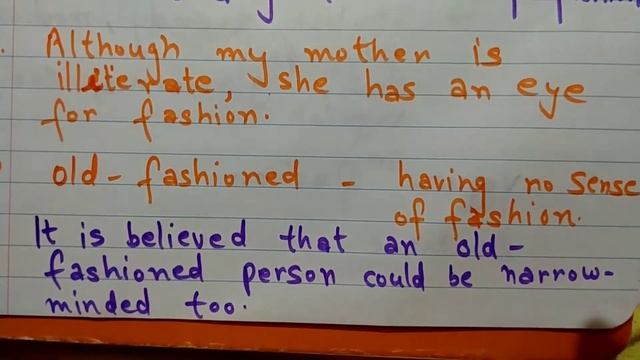 Although my mother is
illiterate, she has an eye
for fashion.
old-fashioned - having no sense
of fashion.
It is believed that an old-
fashioned person could be narrow-
minded too.